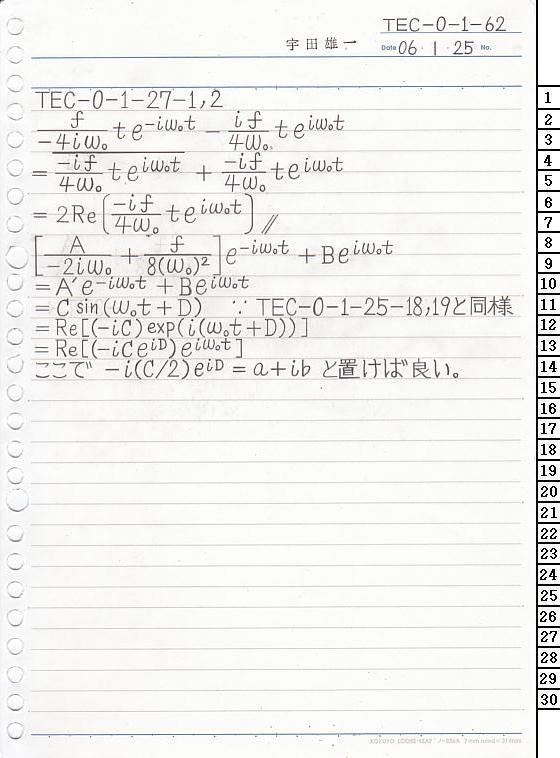 TEC-0-1-62
宇田雄一
Date 06・1・25 No.
TEC-0-1-27-1,2
\frac{f}{-4iω₀} t e^{-iω₀t} - \frac{if}{4ω₀} t e^{iω₀t}
= \overline{\frac{-if}{4ω₀} t e^{iω₀t}} + \frac{-if}{4ω₀} t e^{iω₀t}
= 2Re[\frac{-if}{4ω₀} t e^{iω₀t}] //
[\frac{A}{-2iω₀} + \frac{f}{8(ω₀)²}] e^{-iω₀t} + B e^{iω₀t}
= A′e^{-iω₀t} + Be^{iω₀t}
= C sin(ω₀t + D) ∵ TEC-0-1-25-18,19と同様
= Re[(-iC)exp(i(ω₀t+D))]
= Re[(-iCe^{iD})e^{iω₀t}]
ここで -i(C/2)e^{iD} = a+ib と置けば良い。
KOKUYO LOOSE-LEAF
1
2
3
4
5
6
7
8
9
10
11
12
13
14
15
16
17
18
19
20
21
22
23
24
25
26
27
28
29
30